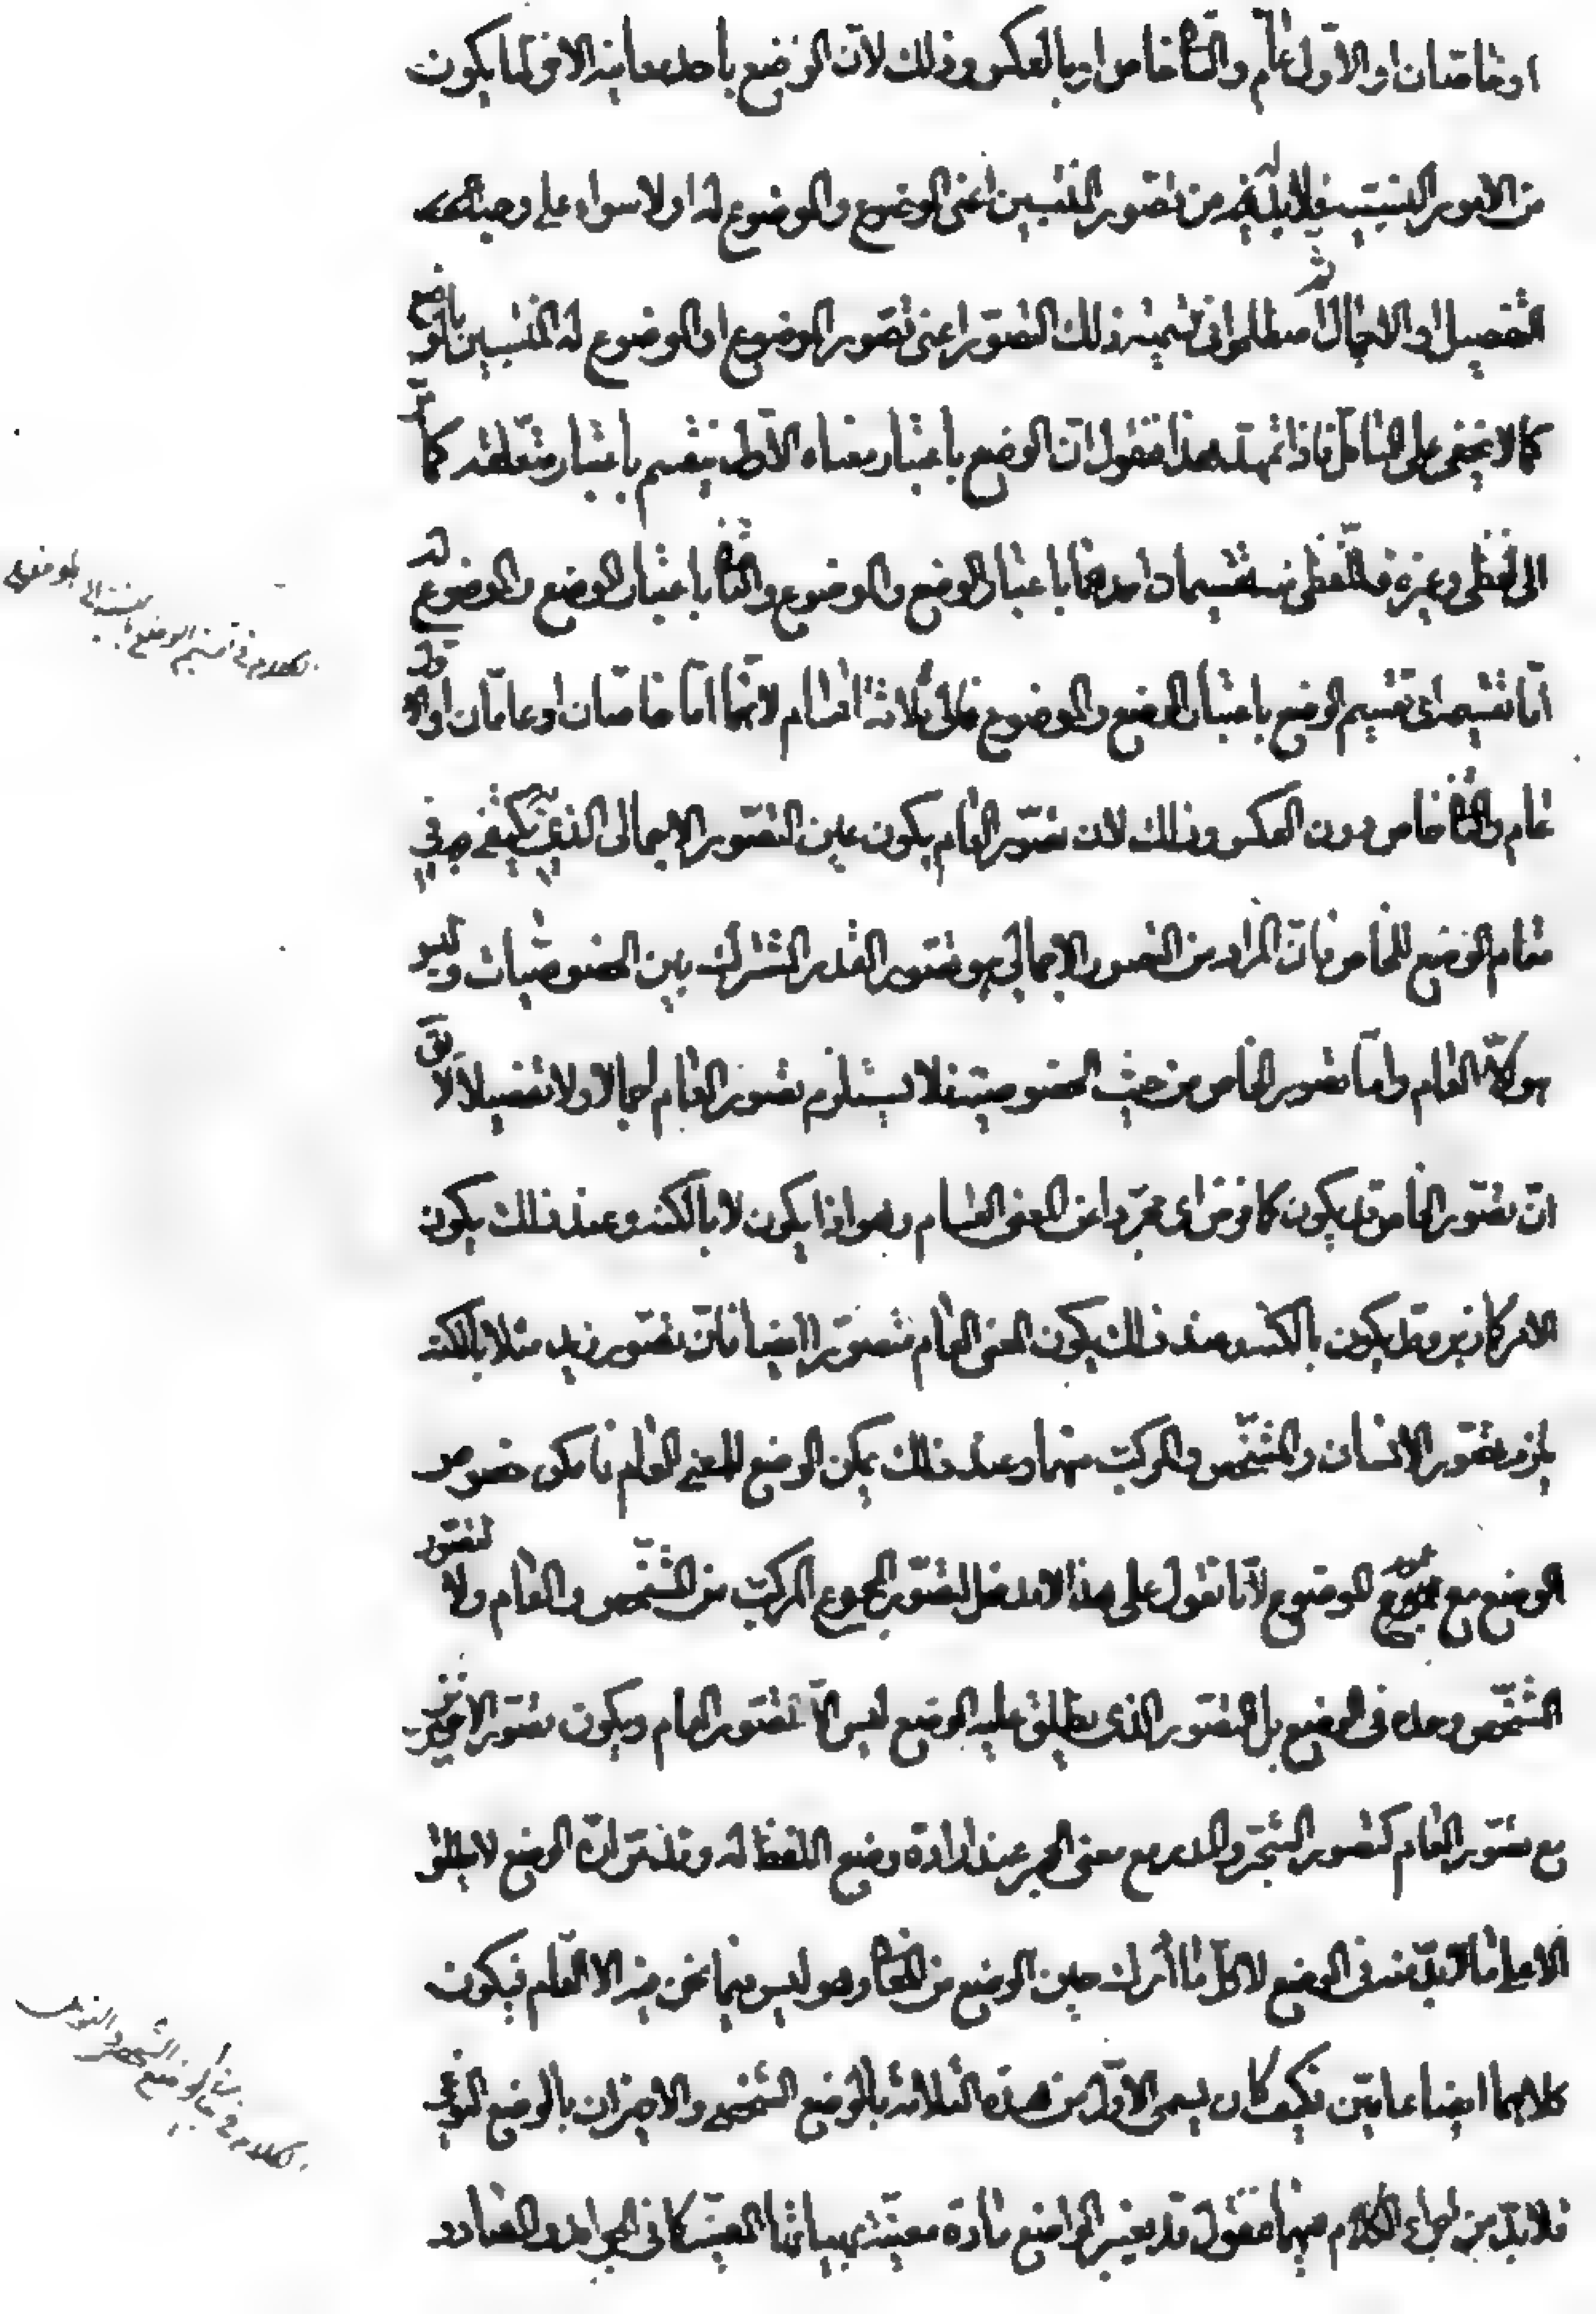 او خاصان او الاول عام والثا خاص او بالعكس وذلك لان الوضع باحد معانيه الاول لما يكون
من الامور النسبية فلا بد فيه من تصور المنتسبين اعنى الموضوع والموضوع له اولا سواء على وجه
التفصيل او الاجمال ثم اصطلحوا فى تسمية ذلك التصور اعنى تصور الموضوع او الموضوع له المنتسبين بالوضع
كما لا يخفى على المتامل فاذا تمهد هذا فنقول ان الوضع باعتبار معناه الاول ينقسم باعتبار متعلقه كما مر
الى لفظى وغيره فاللفظى ينقسم تقسيمات احدها باعتبار الوضع والموضوع والثا باعتبار الوضع والموضوع له
اما تقسيمه اى تقسيم الوضع باعتبار الوضع والموضوع فالى ثلاثة اقسام لانهما اما خاصان او عامان او الاول
عام والثا خاص دون العكس وذلك لان تصور العام يكون عين التصور الاجمالى الذى يكتفى به فى
مقام الوضع للخاص فان المراد من التصور الاجمالى هو تصور القدر المشترك بين الخصوصيات وليس
هو الا العام واما تصور الخاص من حيث الخصوصية فلا يستلزم تصور العام اجمالا ولا تفصيلا لا يق
ان تصور الخاص قد يكون كما فرض اى مجردا عن المعنى العام وهو اذا يكون لا بالكنه وعند ذلك يكون
الامر كما ذبر وقد يكون بالكنه وعند ذلك يكون المعنى العام متصورا ايضا فان تصور زيد مثلا بالكنه
يلزمه تصور الانسان والتشخص والمركب منهما وعند ذلك يمكن الوضع للمعنى العام فامكن خصوص
الوضع مع عموم الموضوع لانا نقول على هذا لا مدخل لتصور المجموع المركب من التشخص والعام ولا لتصور
التشخص وحده فى الوضع بل التصور الذى يطلق عليه الوضع ليس الا تصور العام ويكون تصور الاخيرين
مع تصور العام كتصور الشجر والمدر مع معنى الحجر عند ارادة وضع اللفظ له وقد مر ان الوضع لا يطلق
الا على ما لا بد منه فى الوضع لا كل ما ادرك حين الوضع من المعا وهو ليس فيما نحن فيه الا العام فيكون
كلاهما ايضا عامين فكيف كان يسمى الاول من هذه الثلاثة بالوضع الشخصى والاخيران بالوضع النوعى
فلا بد من اجراء الكلام فيهما فنقول قد يعتبر الواضع مادة معينة بهيئاتها المعينة كما فى الجوامد والمصادر
الكلام فى تقسيم الوضع بالنسبة الى الموضوع
الكلام فى بيان الوضع الشخصى والنوعى